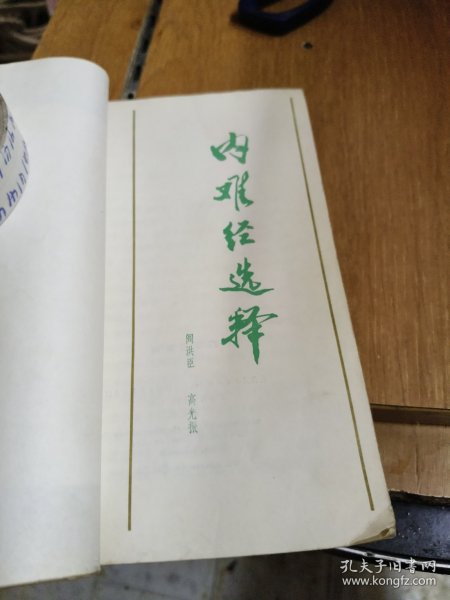 内难经选释
阎洪臣 高光振
孔夫子旧书网
www.kongfz.com